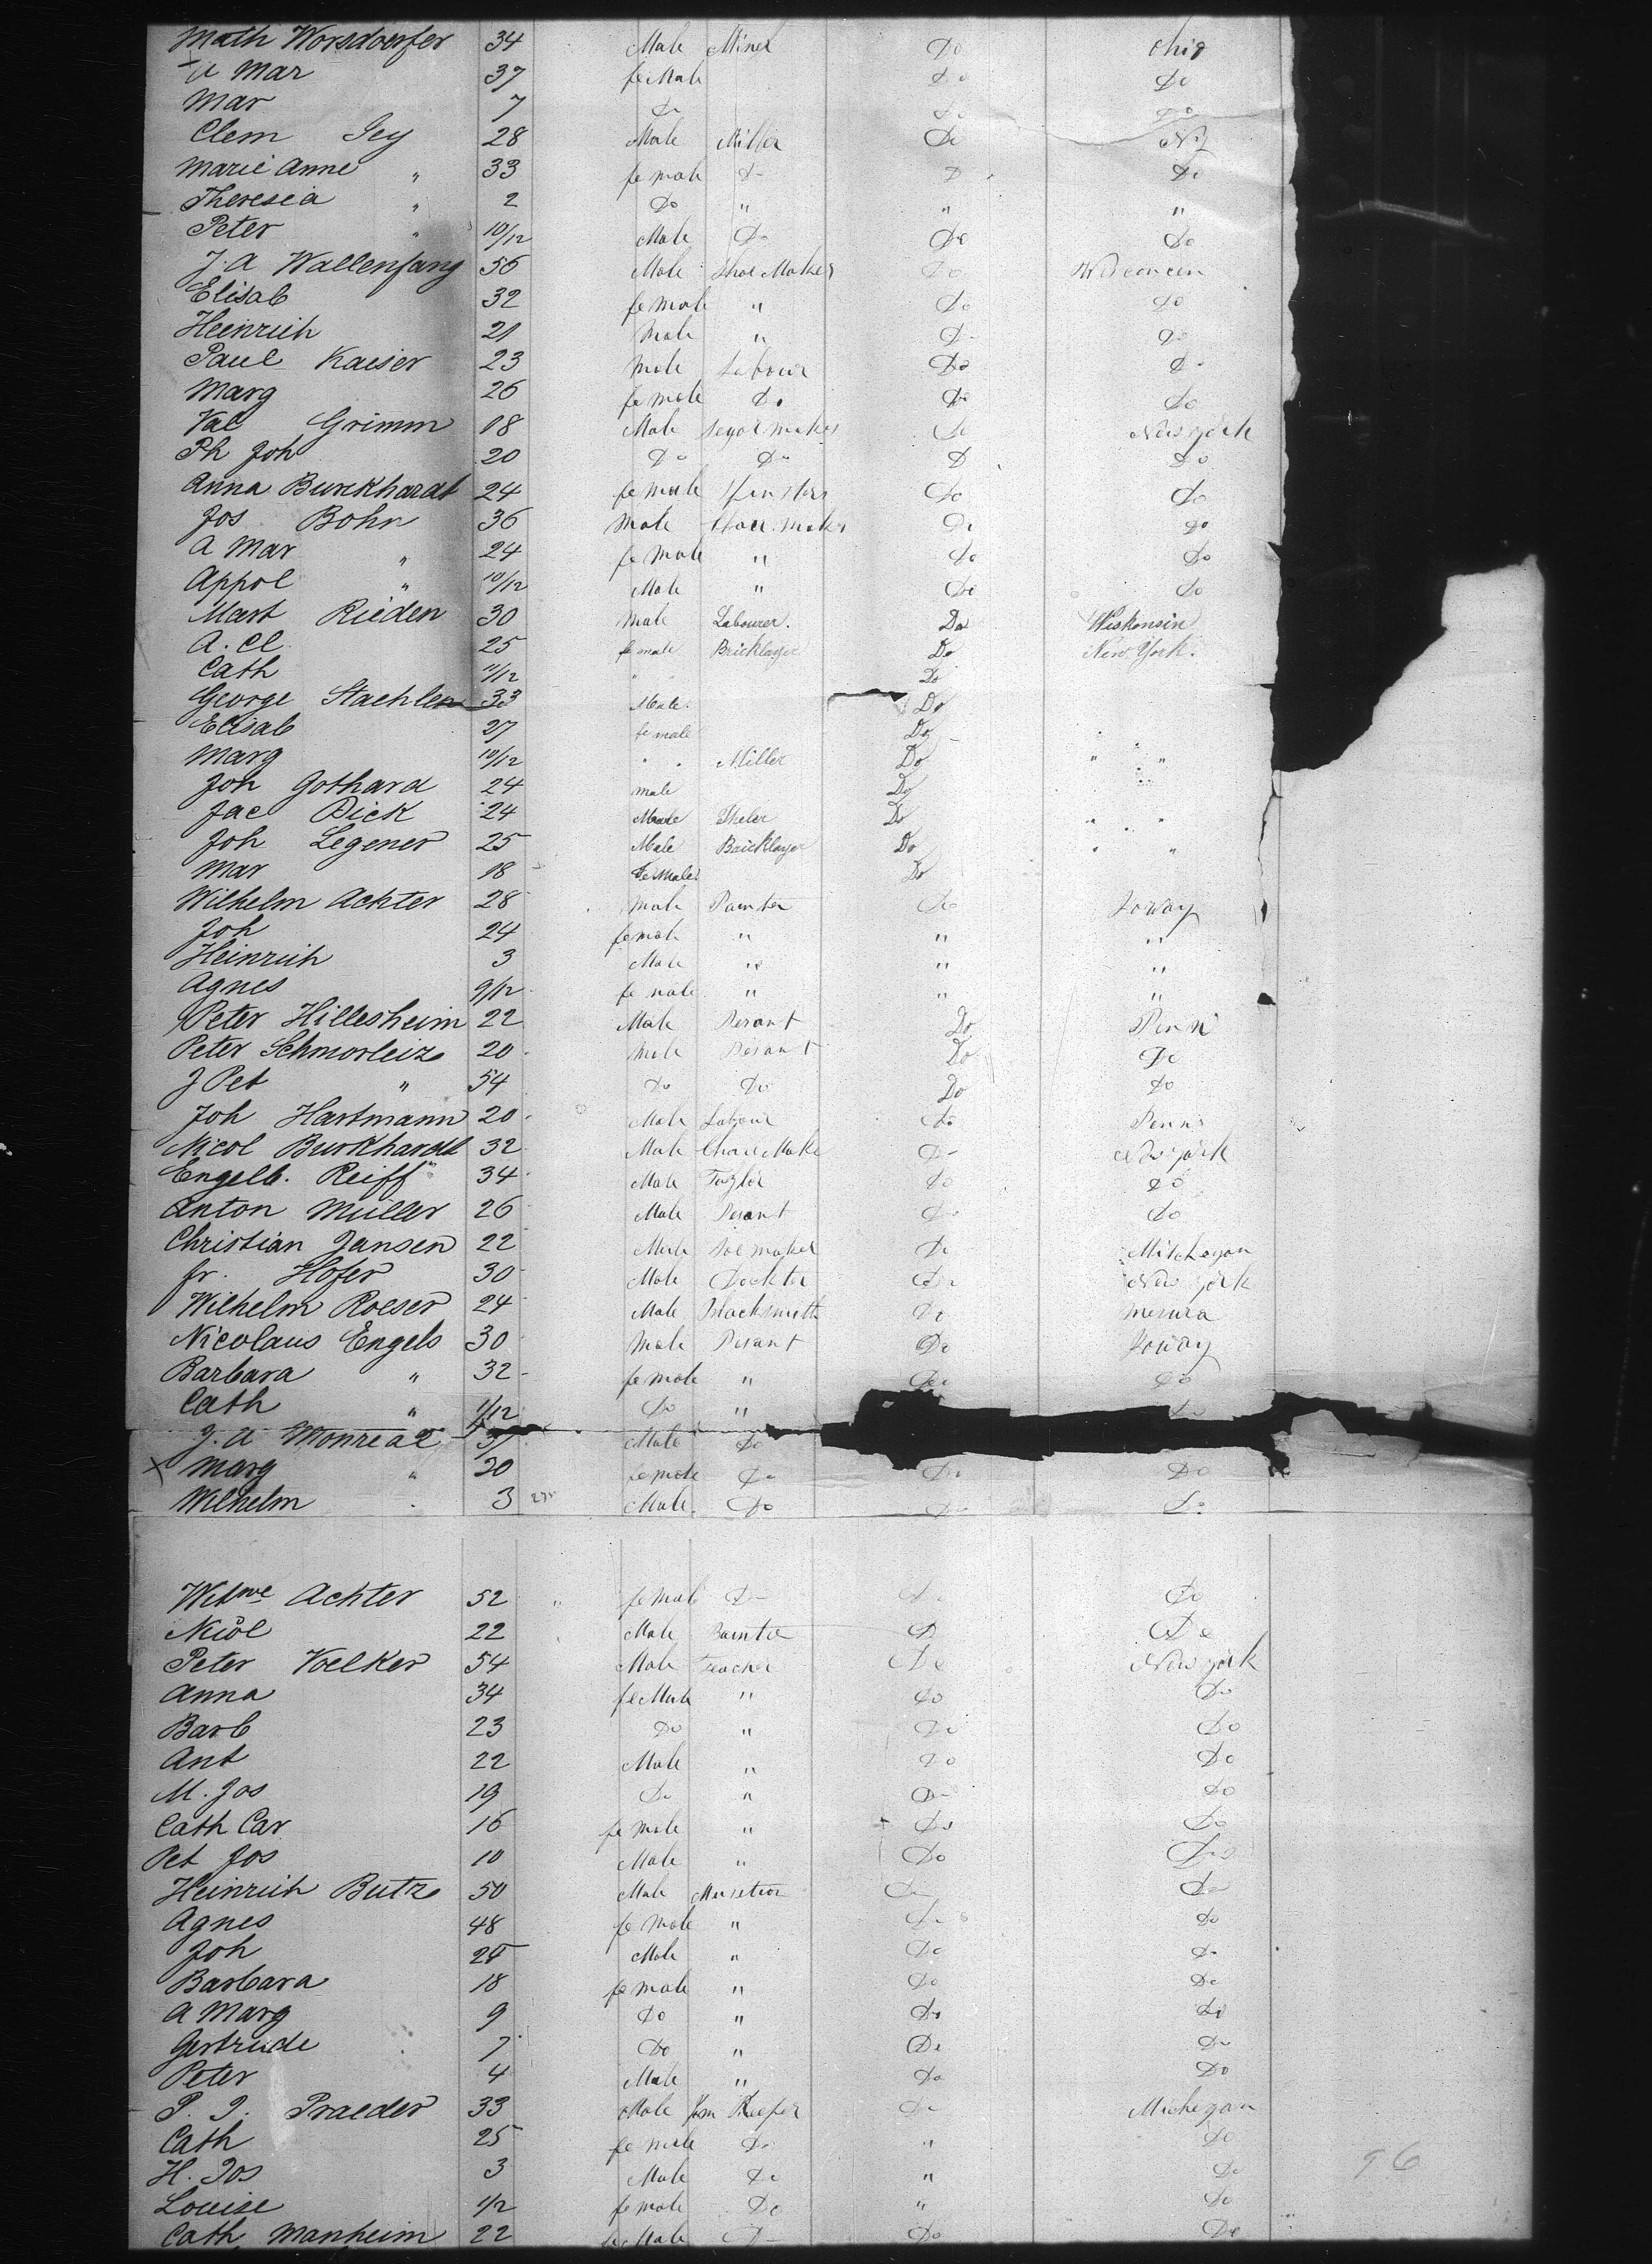 Math Worsdoerfer 34 Male Miner Do Ohio
A Mar 37 feMale Do Do
Mar 7 Do Do Do
Clem Jey 28 Male Miller Do NY
Marie Anne " 33 female Do D Do
Theresia " 2 Do " " "
Peter " 10/12 Male Do Do Do
J. A Wallenfang 56 Male Shoe Maker Do Wisconcen
Elisab 32 female " Do Do
Heinrich 21 Male " Do Do
Paul Kaiser 23 Male Labour Do Do
Marg 26 female Do Do Do
Val Grimm 18 Male Segar maker Do New york
Ph Joh 20 Do Do D Do
Anna Burckhardt 24 female Do Do
Jos Bohn 36 Male maker Do Do
A Mar " 24 female " Do Do
Appol " 10/12 Male " Do Do
Mart Rieden 30 Male Labourer. Do Wiskonsin
A. Cl 25 female Bricklayer Do New York.
Cath 11/12 " Do
George Staehlen 33 Male. Do
Elisab 27 female Do
Marg 10/12 " " Miller Do " "
Joh Gothard 24 male Do
Jac Dick 24 Male Do " "
Joh Legener 25 Male Bricklayer Do " "
Mar 18 feMale Do
Wilhelm Achter 28 Male Painter Do Joway
Joh 24 female " " "
Heinrich 3 Male " " "
Agnes 9/12 female " " "
Peter Hillesheim 22 Male Pesant Do Penn
Peter Schmorleiz 20 Male Pesant Do Do
J Pet " 54 Do Do Do Do
Joh Hartmann 20 Male Labour Do Penns
Nicol Burkhardt 32 Male Maker Do New york
Engelb. Reiff 34 Male Taylor Do Do
Anton Müller 26 Male Pesant Do Do
Christian Jansen 22 Male Soe maker Do Mitchegan
Fr. Hofer 30 Male Dockter Do New york
Wilhelm Roeser 24 Male Blacksmith Do
Nicolaus Engels 30 Male Pesant Do Joway
Barbara " 32 female " Do Do
Cath " 1/12 Do " Do
J. A Monreal 37 Male Do
X Marg " 20 female Do Do Do
Wilhelm 3 Male. Do Do Do
Witwe Achter 52 female Do D Do
Nicol 22 Male Bainter D Do
Peter Voelker 54 Male Teacher Do New york
Anna 34 feMale " Do Do
Barb 23 Do " Do Do
Ant 22 Male " Do Do
M. Jos 19 Do " Do Do
Cath Car 16 female " Do Do
Pet Jos 10 Male " Do Do
Heinrich Butz 50 Male Do Do
Agnes 48 female " Do Do
Joh 25 Male " Do Do
Barbara 18 female " Do Do
A Marg 9 Do " Do Do
Gertrude 7 Do " Do Do
Peter 4 Male " Do Do
P. J. Praeder 33 Male Keeper Do Michegan
Cath 25 female Do " Do
H. Jos 3 Male Do " Do
Louise 1/2 female Do " Do
Cath Manheim 22 feMale D Do Do
96